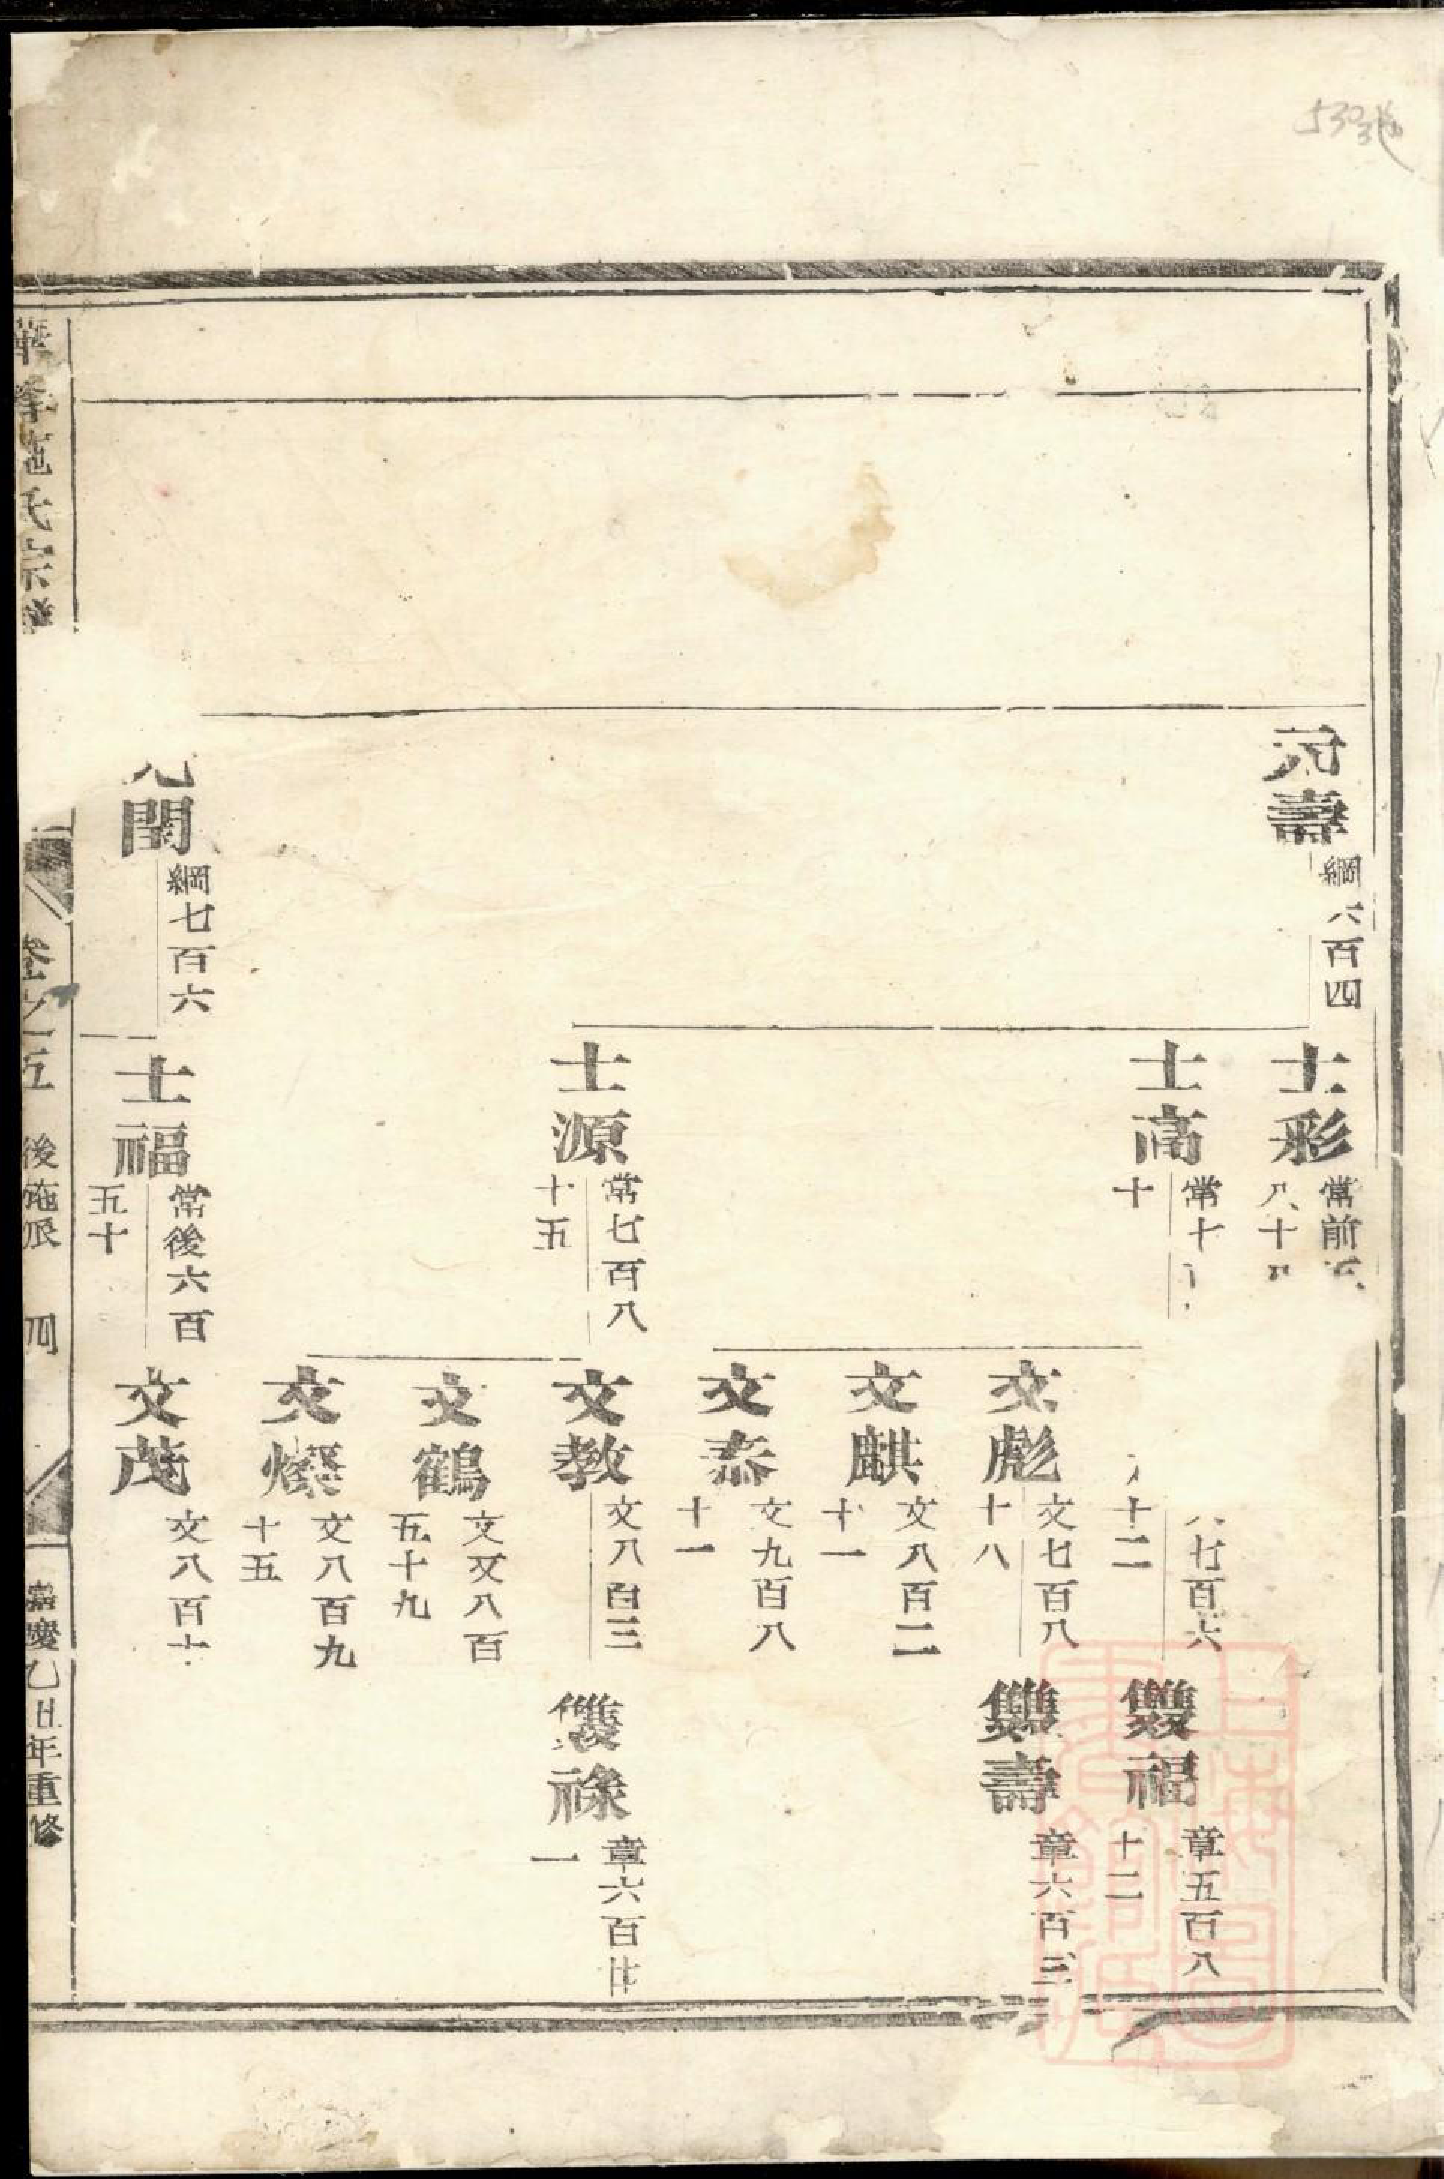 元壽
綱六百四
士彩
常前五
八十四
士高
常十
十
七百六
十二
雙福
章五百八
十二
文彪
文七百八
十八
雙壽
章六百三
文麒
文八百二
十一
文泰
文九百八
十一
士源
常七百八
十五
文教
文八百三
雙祿
章六百廿
一
文鶴
文又八百
五十九
文燦
文八百九
十五
元閏
綱七百六
士福
常後六百
五十
文茂
文八百十
華峯施氏宗譜
卷之五
後苑派
四
嘉慶乙丑年重修
上海圖書館藏